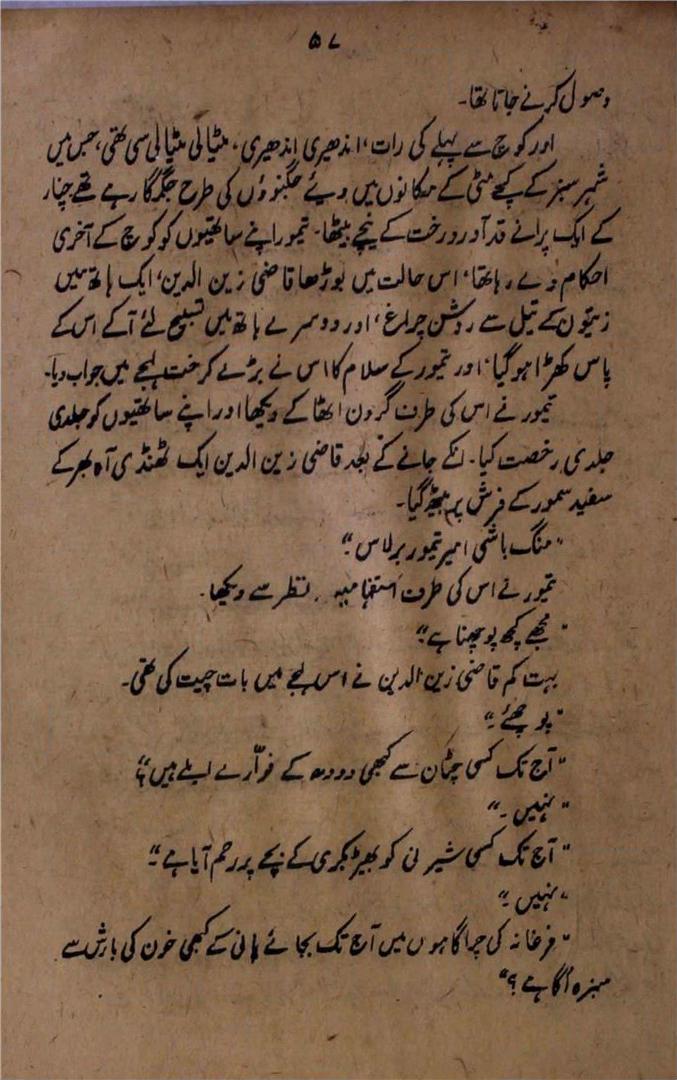 ۵۷
وصول کرنے جاتا تھا۔
اور کوچ سے پہلے کی رات، اندھیری اندھیری، مٹیالی مٹیالی سی تھی، جس میں
شہر سبز کے کچے مٹی کے مکانوں میں دیئے جگنوؤں کی طرح جگمگا رہے تھے چنار
کے ایک پرانے قد آور درخت کے نیچے بیٹھا۔ تیمور اپنے ساتھیوں کو کوچ کے آخری
احکام دے رہا تھا، اس حالت میں بوڑھا قاضی زین الدین، ایک ہاتھ میں
زیتون کے تیل سے روشن چراغ، اور دوسرے ہاتھ میں تسبیح لئے آکے اس کے
پاس کھڑا ہو گیا، اور تیمور کے سلام کا اس نے بڑے کرخت لہجے میں جواب دیا۔
تیمور نے اس کی طرف گردن اٹھا کے دیکھا اور اپنے ساتھیوں کو جلدی
جلدی رخصت کیا۔ انکے جانے کے بعد قاضی زین الدین ایک ٹھنڈی آہ بھر کے
سفید سمور کے فرش پر بیٹھ گیا۔
"منگ باشی امیر تیمور برلاس۔"
تیمور نے اس کی طرف استفہامیہ نظر سے دیکھا۔
"مجھے کچھ پوچھنا ہے۔"
بہت کم قاضی زین الدین نے اس لہجے میں بات چیت کی تھی۔
"پوچھئے۔"
"آج تک کسی چٹان سے کبھی دودھ کے فوّارے ابلے ہیں؟"
"نہیں۔"
"آج تک کسی شیرنی کو بھیڑ بکری کے بچے پر رحم آیا ہے۔"
"نہیں۔"
"فرغانہ کی چراگاہوں میں آج تک بجائے پانی کے کبھی خون کی بارش سے
سبزہ اُگا ہے؟"